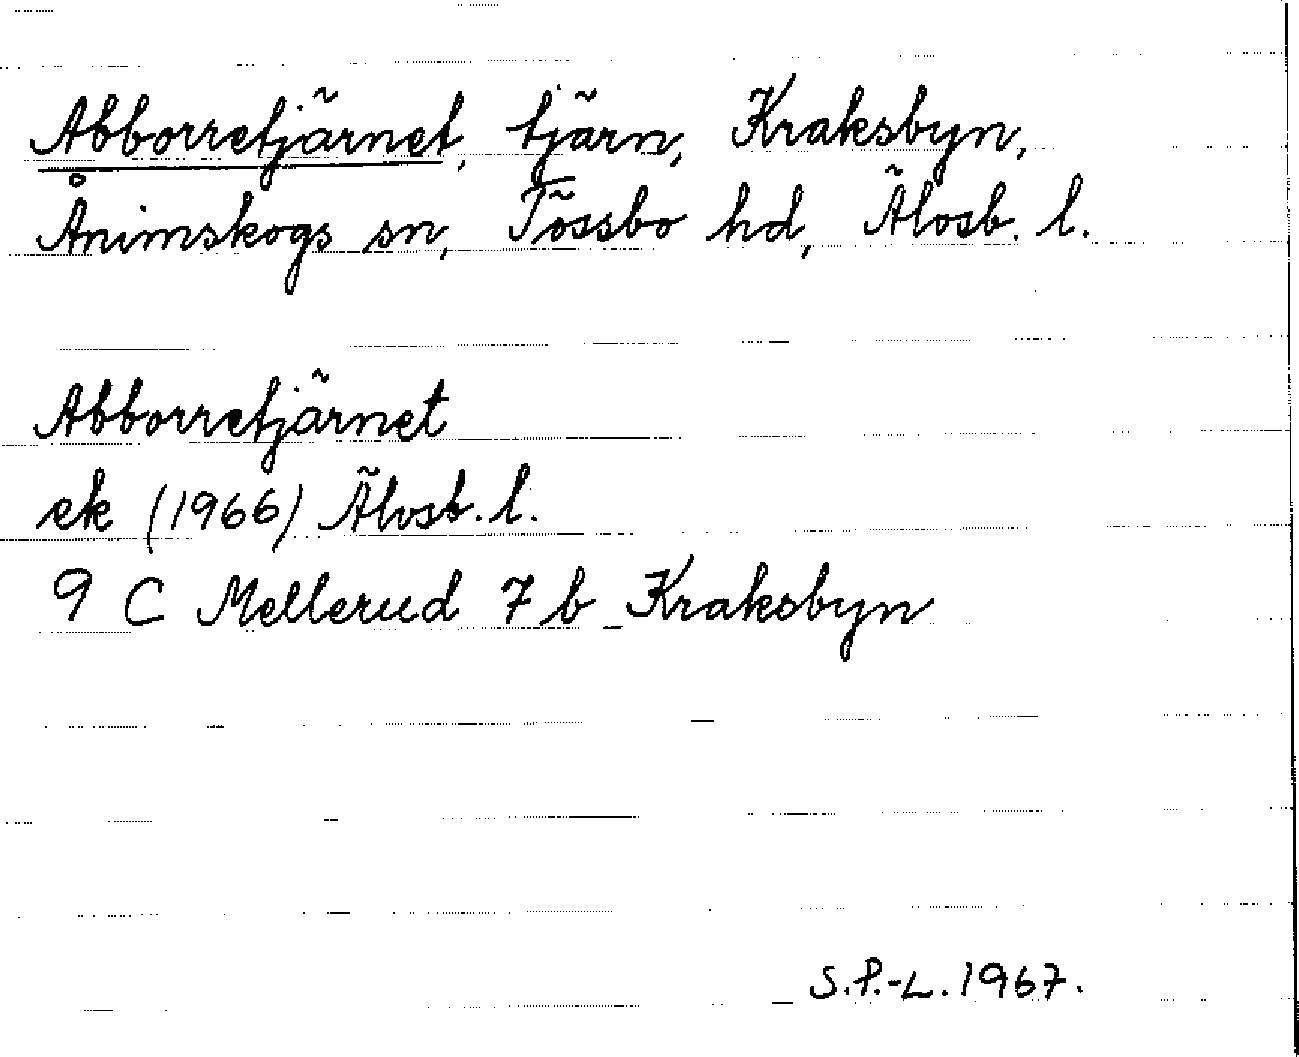 Abborretjärnet, tjärn, Kraksbyn,
Ånimskogs sn, Tössbo hd, Älvsb. l.
Abborretjärnet
ek (1966) Älvsb. l.
9 C Mellerud 7 b Kraksbyn
S.P.-L. 1967.